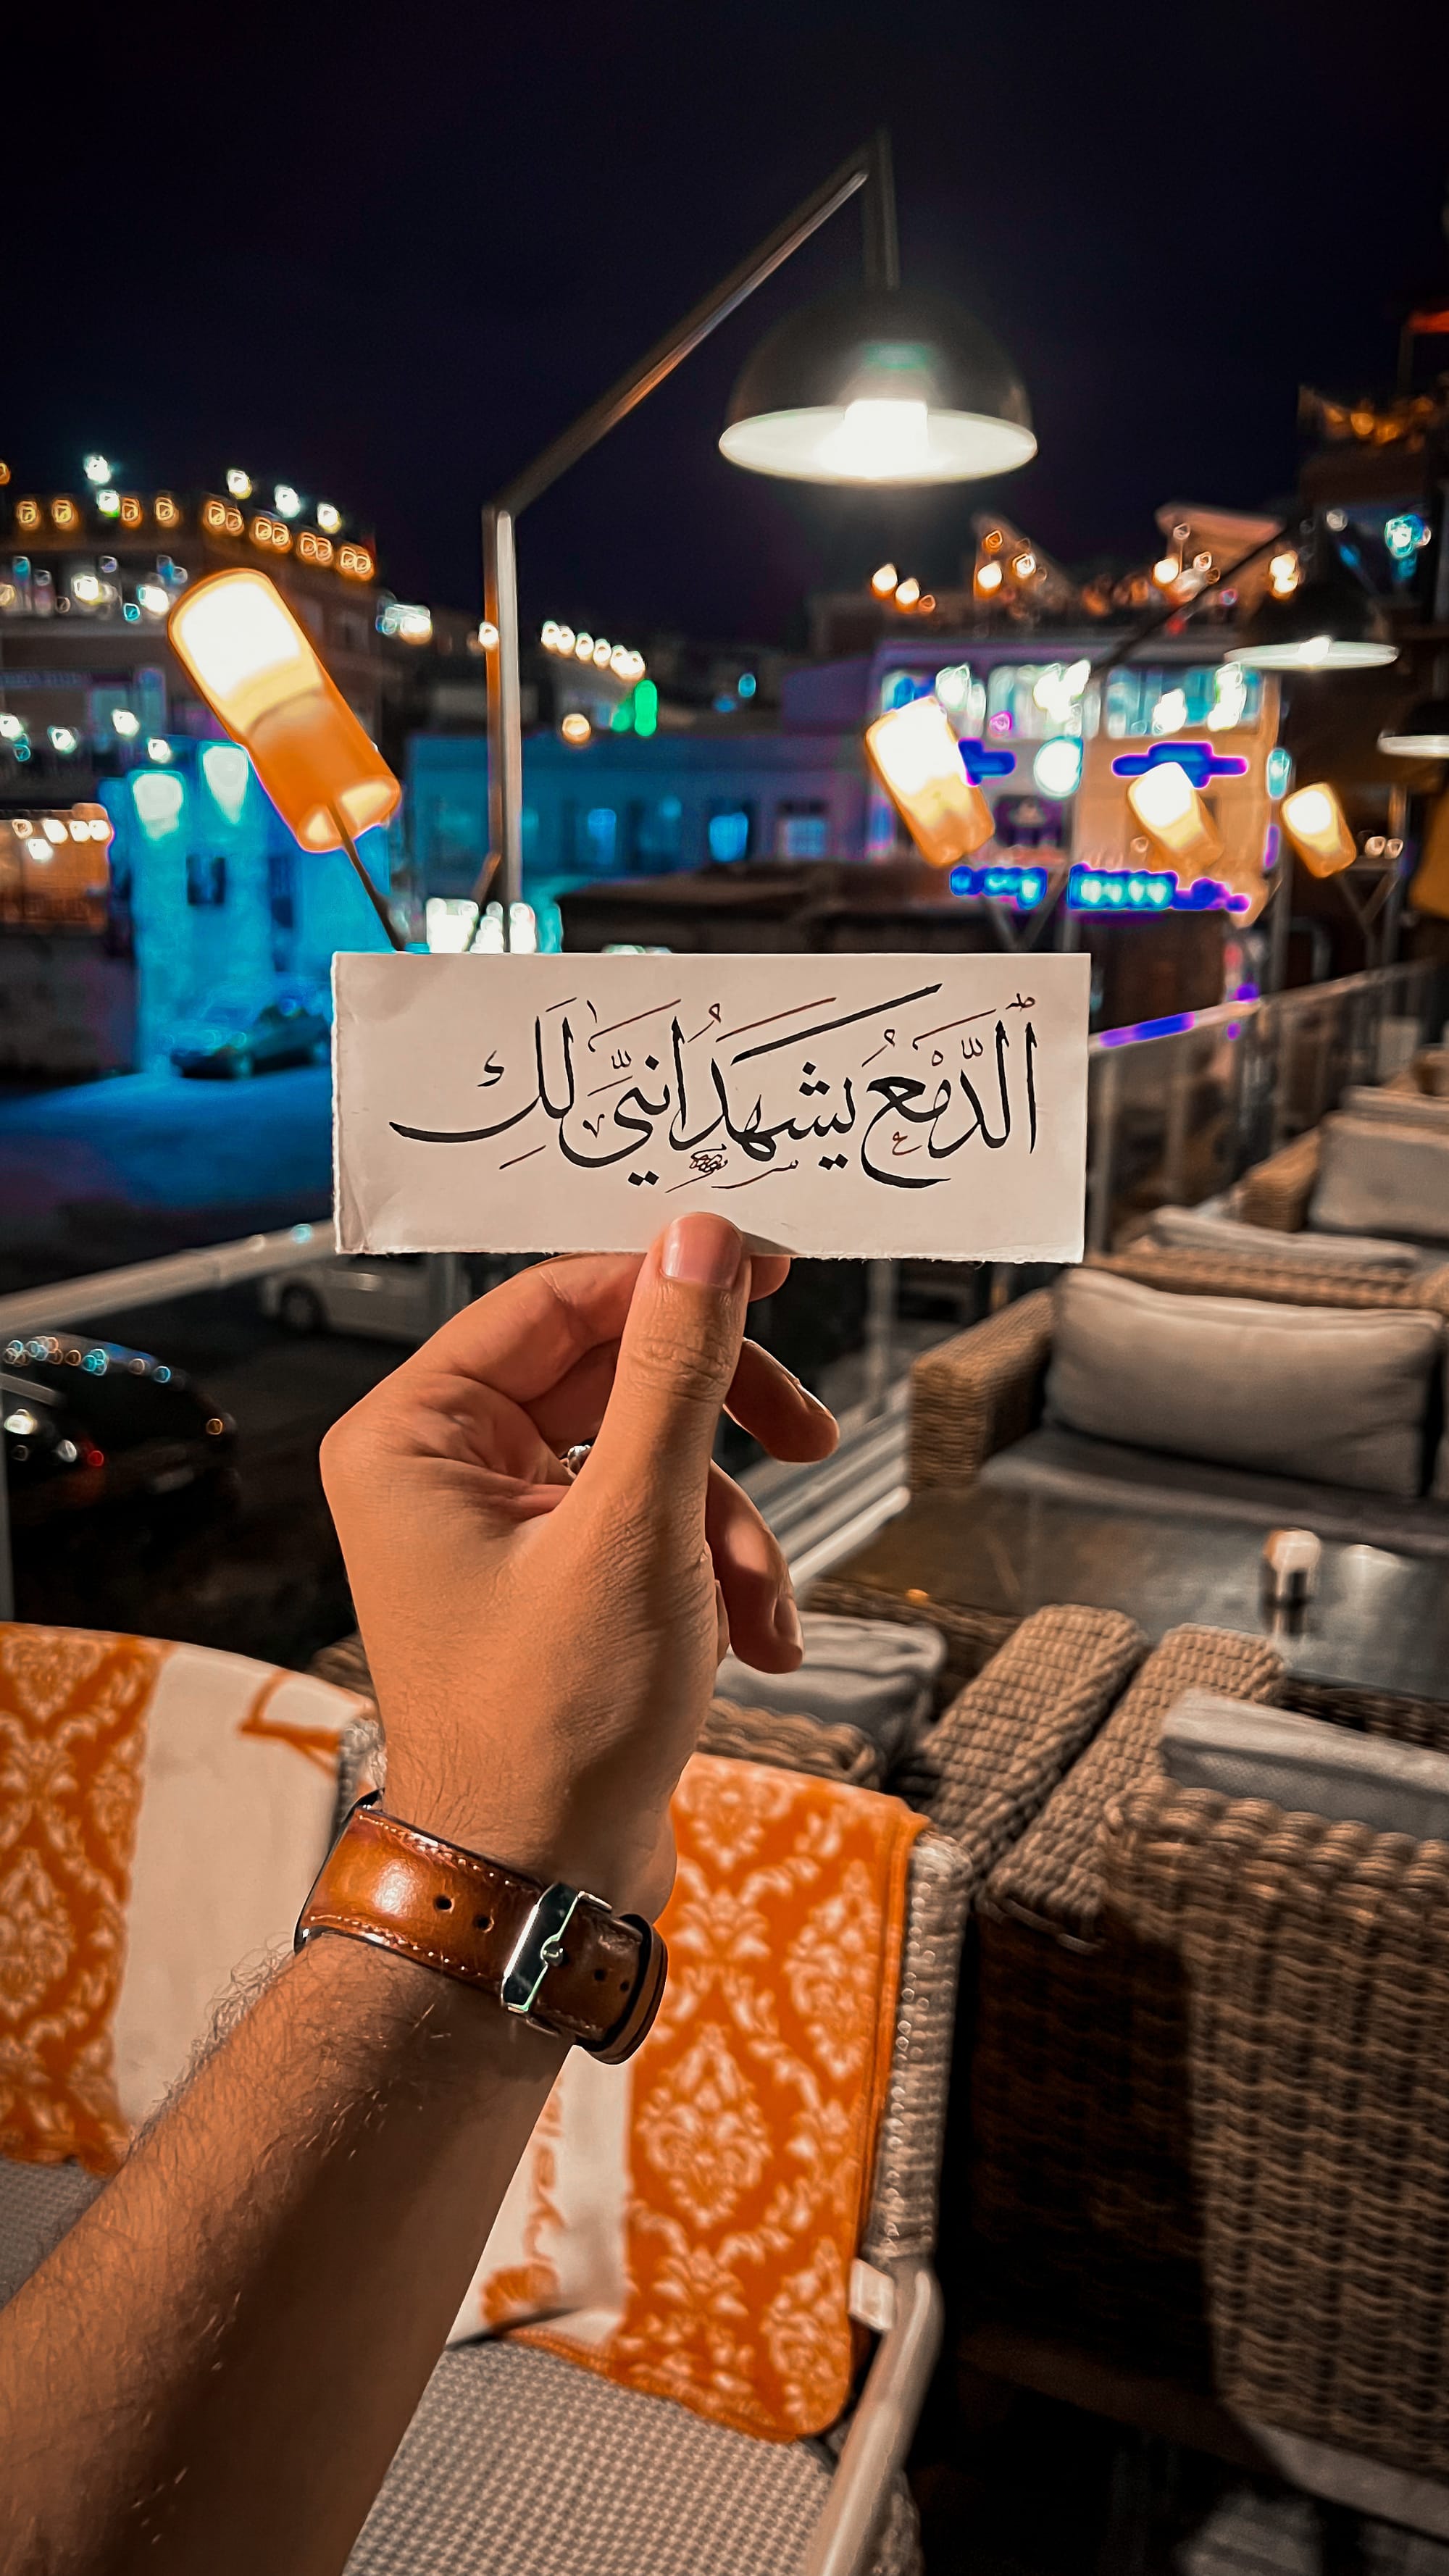 ٱلدَّمْعُ يشهدُ انَّنيَ لَكِ